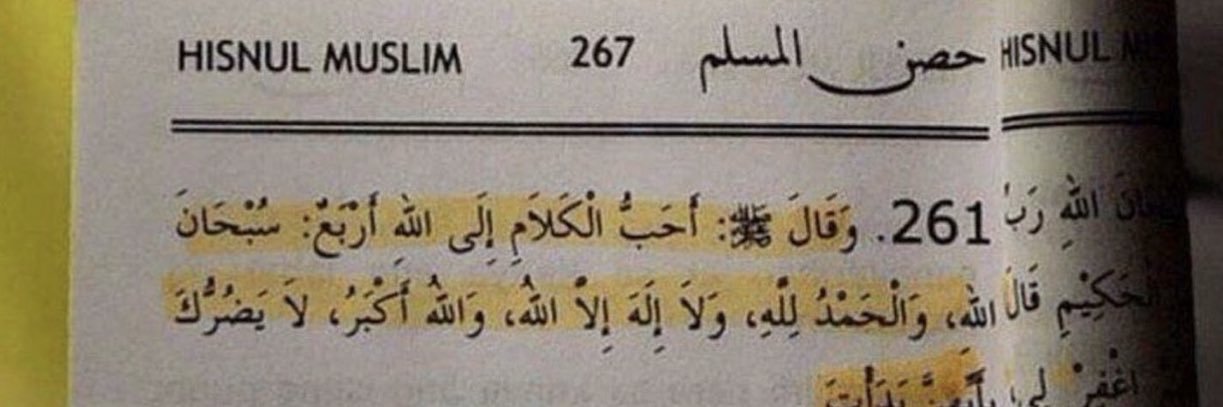 HISNUL MUSLIM 267 حصن المسلم
261. وَقَالَ ﷺ: أَحَبُّ الْكَلاَمِ إِلَى اللهِ أَرْبَعٌ: سُبْحَانَ
اللهِ، وَالْحَمْدُ لِلَّهِ، وَلاَ إِلَهَ إِلاَّ اللهُ، وَاللهُ أَكْبَرُ، لاَ يَضُرُّكَ
بِأَيِّهِنَّ بَدَأْتَ
HISNUL
اللهِ رَبِّ
الْحَكِيْمِ قَالَ
اغْفِرْ لِي،